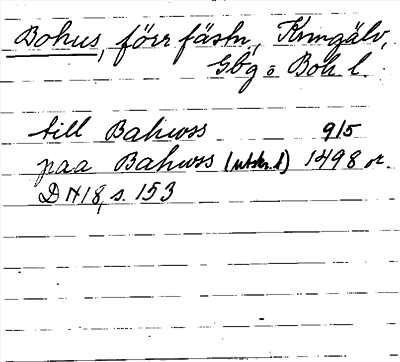 Bohus, förr fästn., Kungälv,
Gbg o Boh l.
till Bahwss 9/5
paa Bahwss (utskr. l) 1498 or.
DN 18, s. 153